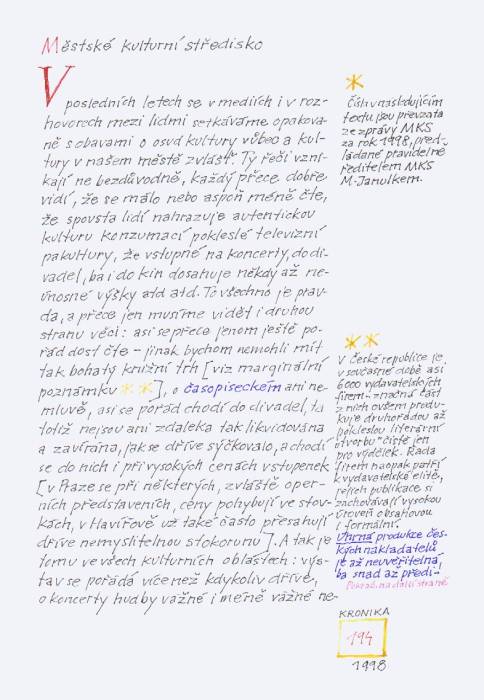 Městské kulturní středisko
V posledních letech se v mediích i v roz-
hovorech mezi lidmi setkáváme opakova-
ně s obavami o osud kultury vůbec a kul-
tury v našem městě zvlášť. Ty řeči vzni-
kají ne bezdůvodně, každý přece dobře
vidí, že se málo nebo aspoň méně čte,
že spousta lidí nahrazuje autentickou
kulturu konzumací pokleslé televizní
pakultury, že vstupné na koncerty, do di-
vadel, ba i do kin dosahuje někdy až ne-
únosné výšky atd atd. To všechno je prav-
da, a přece jen musíme vidět i druhou
stranu věci: asi se přece jenom ještě po-
řád dost čte – jinak bychom nemohli mít
tak bohatý knižní trh [viz marginální
poznámku **], o časopiseckém ani ne-
mluvě, asi se pořád chodí do divadel, ta
totiž nejsou ani zdaleka tak likvidována
a zavírána, jak se dříve sýčkovalo, a chodí
se do nich i při vysokých cenách vstupenek
[v Praze se při některých, zvláště oper-
ních představeních, ceny pohybují ve stov-
kách, v Havířově už také často přesahují
dříve nemyslitelnou stokorunu]. A tak je
tomu ve všech kulturních oblastech: výs-
tav se pořádá více než kdykoliv dříve,
o koncerty hudby vážné i méně vážné ne-
*
Čísla v následujícím
textu jsou převzata
ze zprávy MKS
za rok 1998, před-
kládané pravidelně
ředitelem MKS
M. Janulkem.
**
V České republice je
v současné době asi
6000 vydavatelských
firem – značná část
z nich ovšem produ-
kuje druhořadou až
pokleslou literární
"tvorbu" čistě jen
pro výdělek. Řada
firem naopak patří
k vydavatelské elitě,
jejich publikace si
zachovávají vysokou
úroveň obsahovou
i formální.
Úhrnná produkce čes-
kých nakladatelů
je až neuvěřitelná,
ba snad až předi-
Pokrač. na další straně
KRONIKA
194
1998